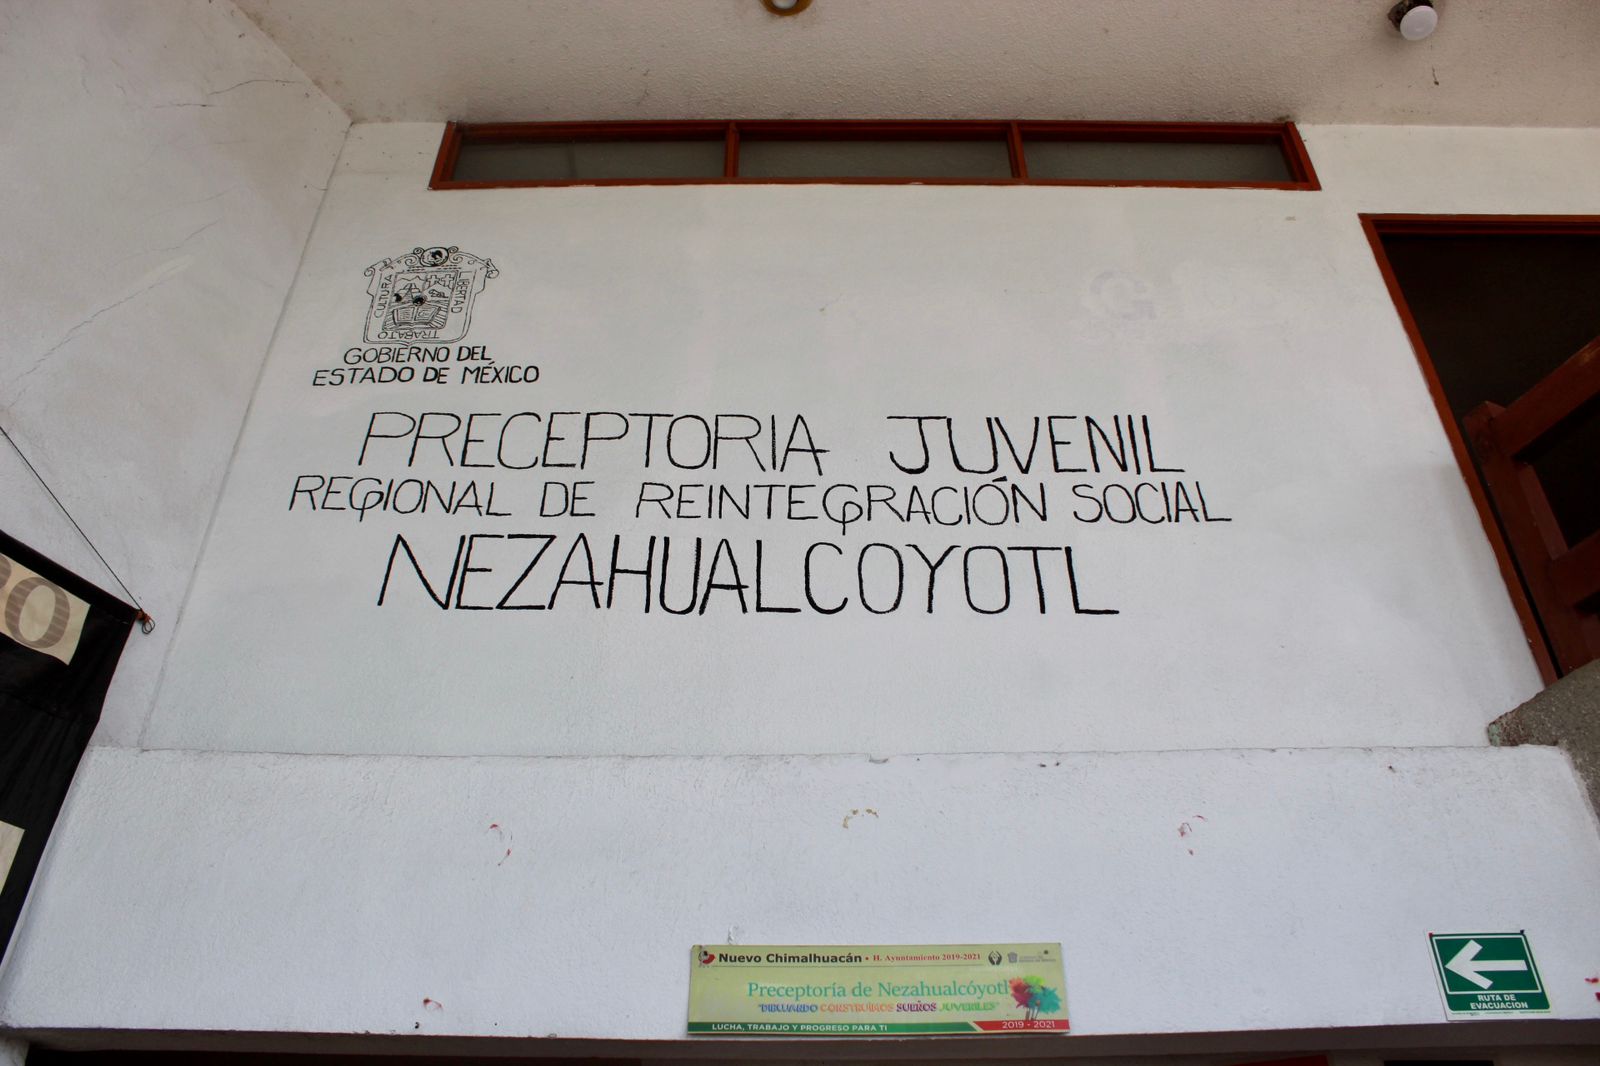 CULTURA
LIBERTAD
TRABAJO
GOBIERNO DEL
ESTADO DE MÉXICO
PRECEPTORIA JUVENIL
REGIONAL DE REINTEGRACIÓN SOCIAL
NEZAHUALCOYOTL
Nuevo Chimalhuacán • H. Ayuntamiento 2019-2021
Preceptoría de Nezahualcóyotl
"DIBUJANDO CONSTRUÍMOS SUEÑOS JUVENILES"
LUCHA, TRABAJO Y PROGRESO PARA TI
2019 - 2021
RUTA DE
EVACUACION